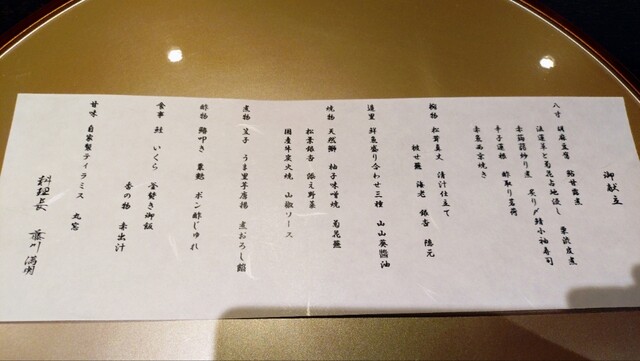 御献立
八寸 胡麻豆腐 鮎甘露煮 栗渋皮煮
法蓮草と菊花占地浸し 炙り〆鯖小袖寿司
赤蒟蒻炒り煮
辛子蓮根 酢取り茗荷
赤魚西京焼き
椀物 松茸真丈 清汁仕立て
桂せ蕪 海老 銀杏 隠元
造里 鮮魚盛り合わせ三種 山山葵醤油
焼物 天然鰤 柚子味噌焼 菊花蕪
松葉銀杏 添え野菜
国産牛炭火焼 山椒ソース
煮物 里芋唐揚 煮おろし餡
酢物 鮪叩き ポン酢じゅれ
食事 鮭 いくら 釜焚き御飯
香の物 赤出汁
甘味 自家製ティラミス
料理長 藤川